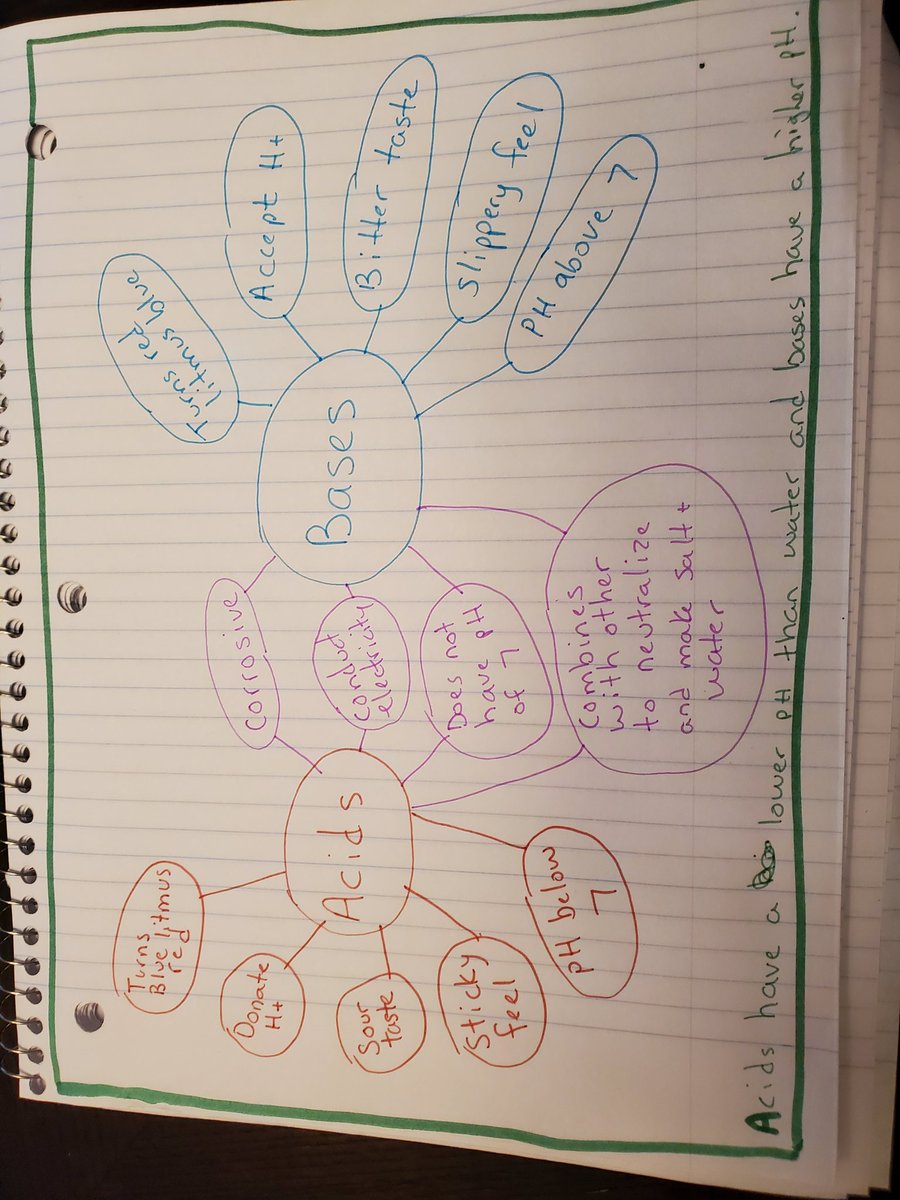 Turns
Blue litmus
red
Donate
H+
Sour
taste
Sticky
feel
pH below
7
Acids
Corrosive
Conduct
electricity
Does not
have pH
of 7
Combines
with other
to neutralize
and make salt +
water
Bases
Turns red
litmus blue
Accept H+
Bitter taste
Slippery feel
PH above 7
Acids have a lower pH than water and bases have a higher pH.